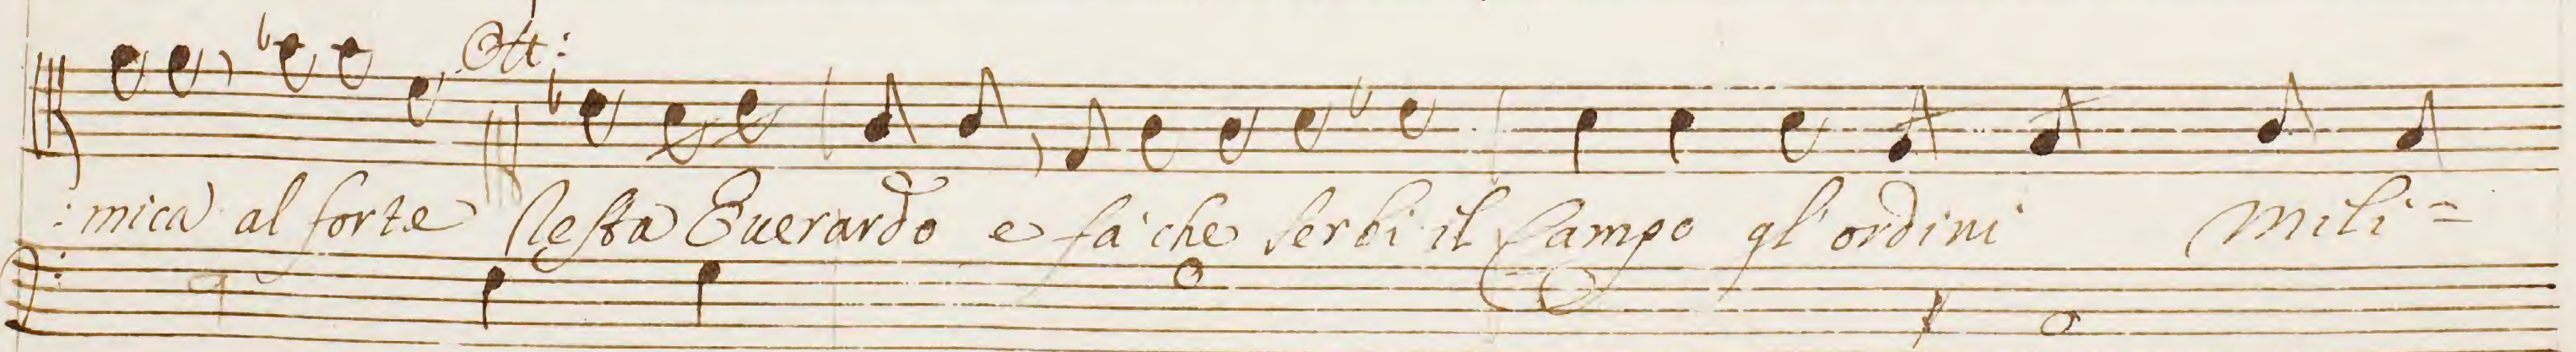 Ott:
:mica al forte Resta Euerardo e fa che serbi il Campo gl'ordini Mili=